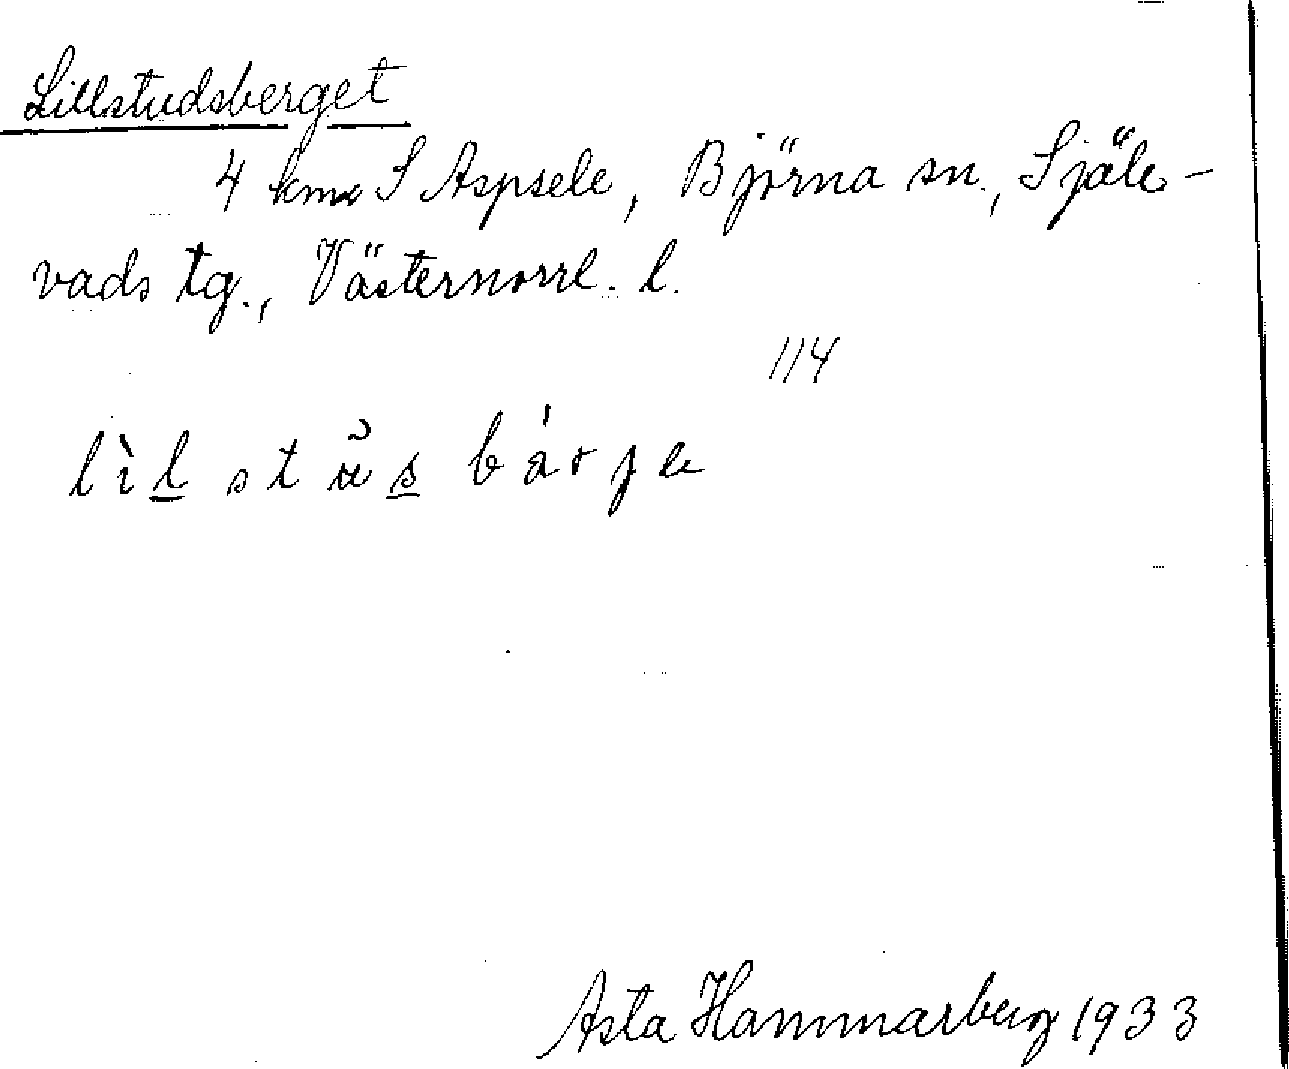 Lillstudsberget
4 km S Aspsele, Björna sn., Själe-
vads tg., Västernorrl. l.
114
lìl stùs bárje
Asta Hammarberg 1933